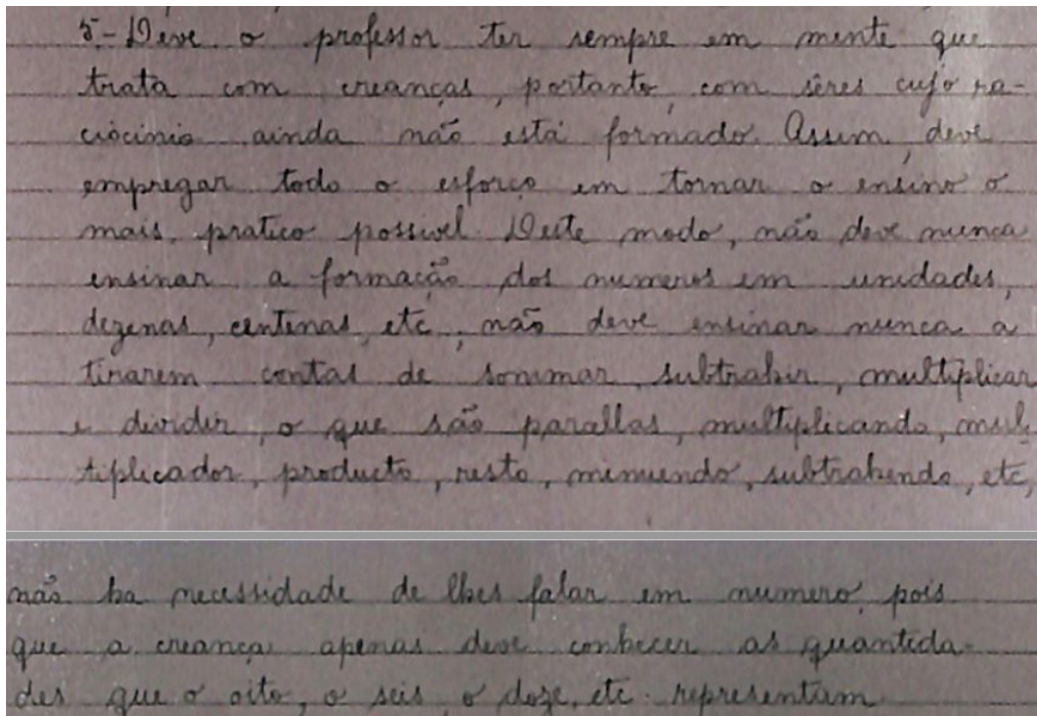 5-Deve o professor ter sempre em mente que
trata com creanças, portanto, com sêres cujo ra-
ciocinio ainda não está formado. Assim, deve
empregar todo o esforço em tornar o ensino o
mais pratico possivel. Deste modo, não deve nunca
ensinar a formação dos numeros em unidades,
dezenas, centenas, etc, não deve ensinar nunca a
tirarem contas de sommar, subtrahir, multiplicar
e dividir, o que são parallas, multiplicando, mul-
tiplicador, producto, resto, minuendo, subtrahendo, etc,
não ha necessidade de lhes falar em numero, pois
que a creança apenas deve conhecer as quantida-
des que o oito, o seis, o doze, etc. representam